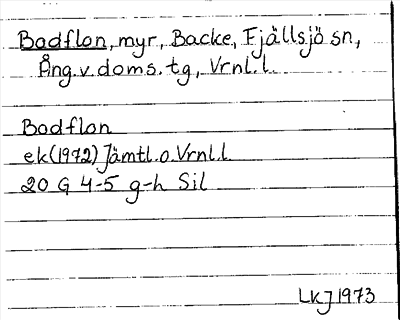 Bodflon, myr, Backe, Fjällsjö sn,
Ång.v.doms.tg, Vrnl.l.
Bodflon
ek(1972) Jämtl.o.Vrnl.l.
20 G 4-5 g-h Sil
LKJ 1973